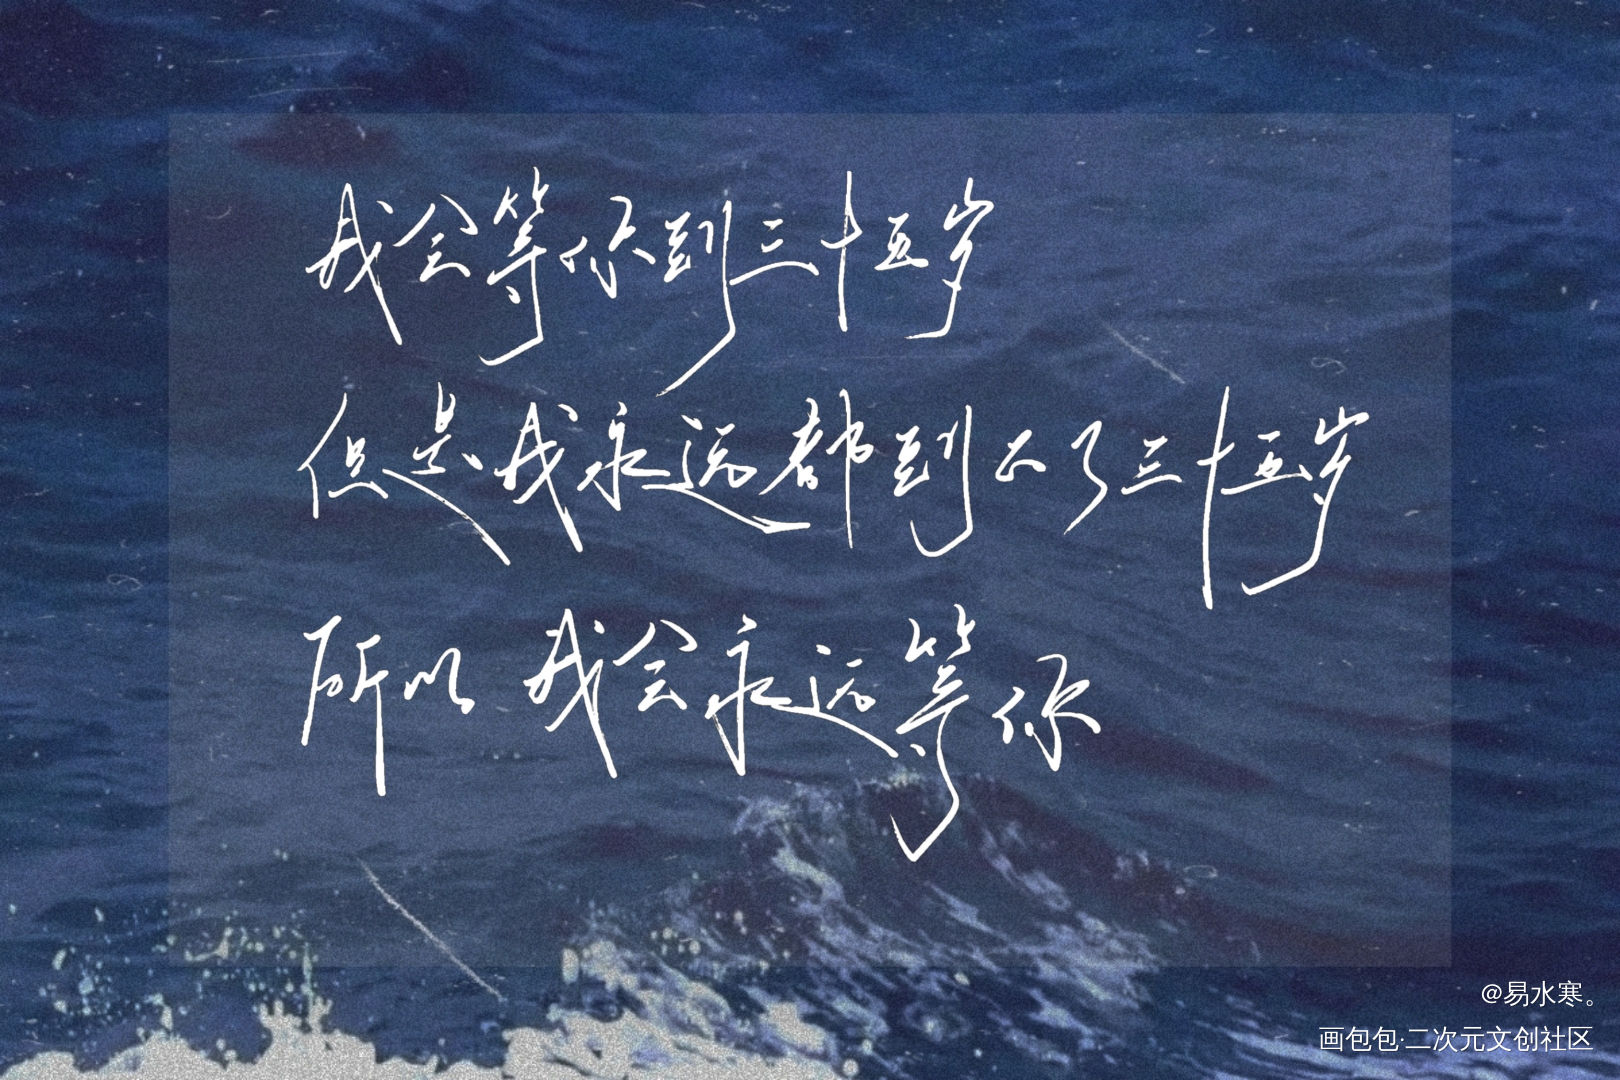 我会等你到三十五岁
但是我永远都到不了三十五岁
所以 我会永远等你
@易水寒。
画包包·二次元文创社区